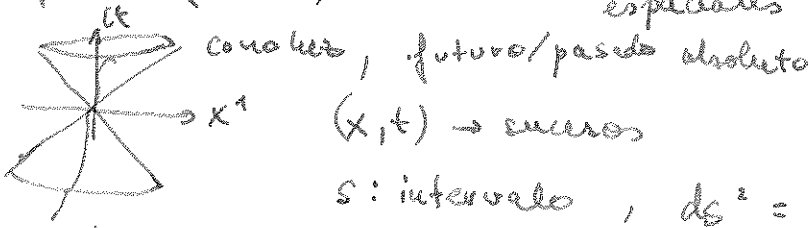 especiales
ct
cono luz, futuro/pasado absoluto
x¹
(x,t) → sucesos
S: intervalo, ds² =